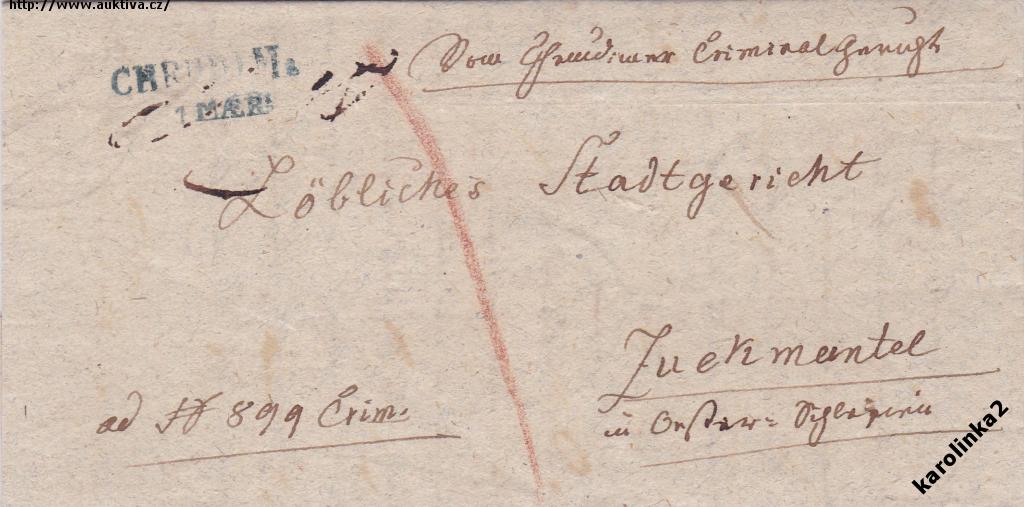 http://www.auktiva.cz/
CHRUDIM
1 MÆR:
Vom Chrudimer Criminalgericht
Löbliches Stadtgericht
Zuckmantel
in Oester: Schlesien
ad N 899 Crim:
karolinka2